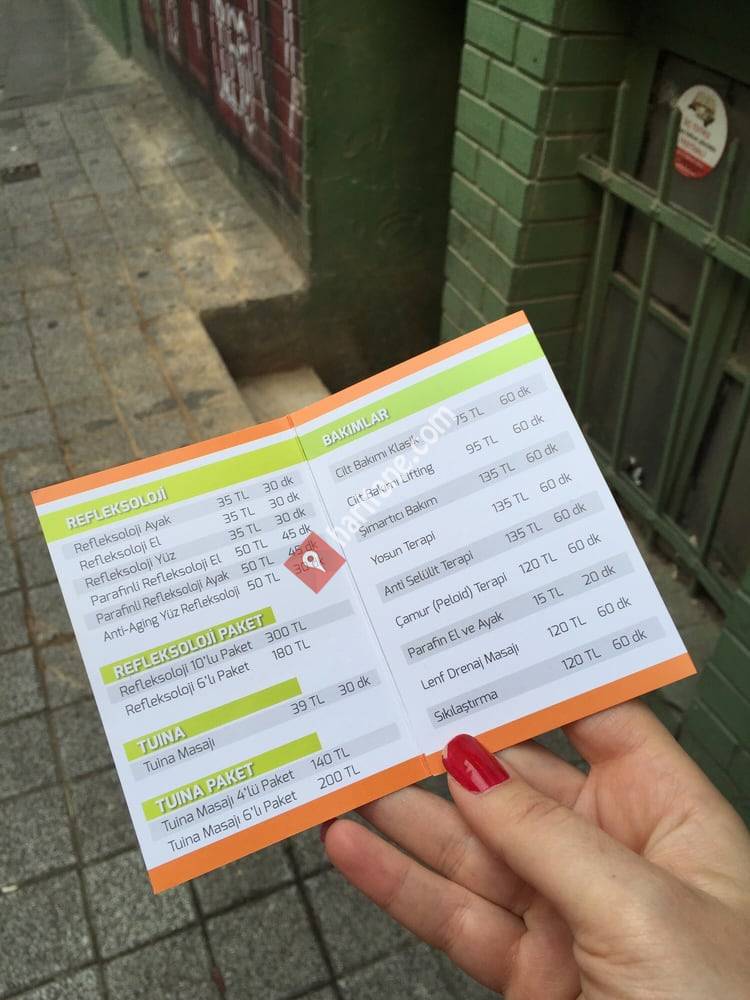 REFLEKSOLOJİ
Refleksoloji Ayak 35 TL 30 dk
Refleksoloji El 35 TL 30 dk
Refleksoloji Yüz 35 TL 30 dk
Parafinli Refleksoloji El 50 TL 45 dk
Parafinli Refleksoloji Ayak 50 TL 45 dk
Anti-Aging Yüz Refleksoloji 50 TL 30
REFLEKSOLOJİ PAKET
Refleksoloji 10'lu Paket 300 TL
Refleksoloji 6'lı Paket 180 TL
TUINA
Tuina Masajı 39 TL 30 dk
TUINA PAKET
Tuina Masajı 4'lü Paket 140 TL
Tuina Masajı 6'lı Paket 200 TL
BAKIMLAR
Cilt Bakımı Klasik 75 TL 60 dk
Cilt Bakımı Lifting 95 TL 60 dk
Şımartıcı Bakım 135 TL 60 dk
Yosun Terapi 135 TL 60 dk
Anti Selülit Terapi 135 TL 60 dk
Çamur (Peloid) Terapi 120 TL 60 dk
Parafin El ve Ayak 15 TL 20 dk
Lenf Drenaj Masajı 120 TL 60 dk
Sıkılaştırma 120 TL 60 dk